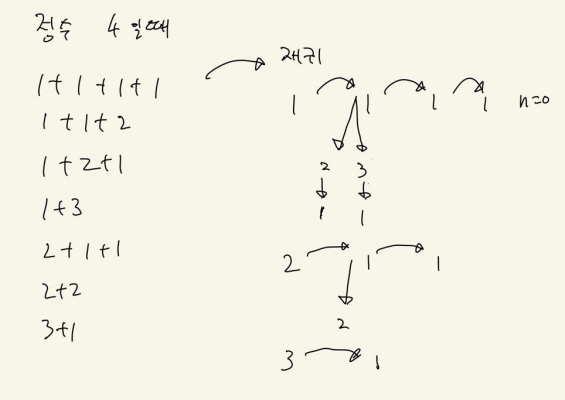 정수 4 일때
1+1+1+1
1+1+2
1+2+1
1+3
2+1+1
2+2
3+1
재귀
1 1 1 1 n=0
2 3
1 1
2 1 1
2
3 1